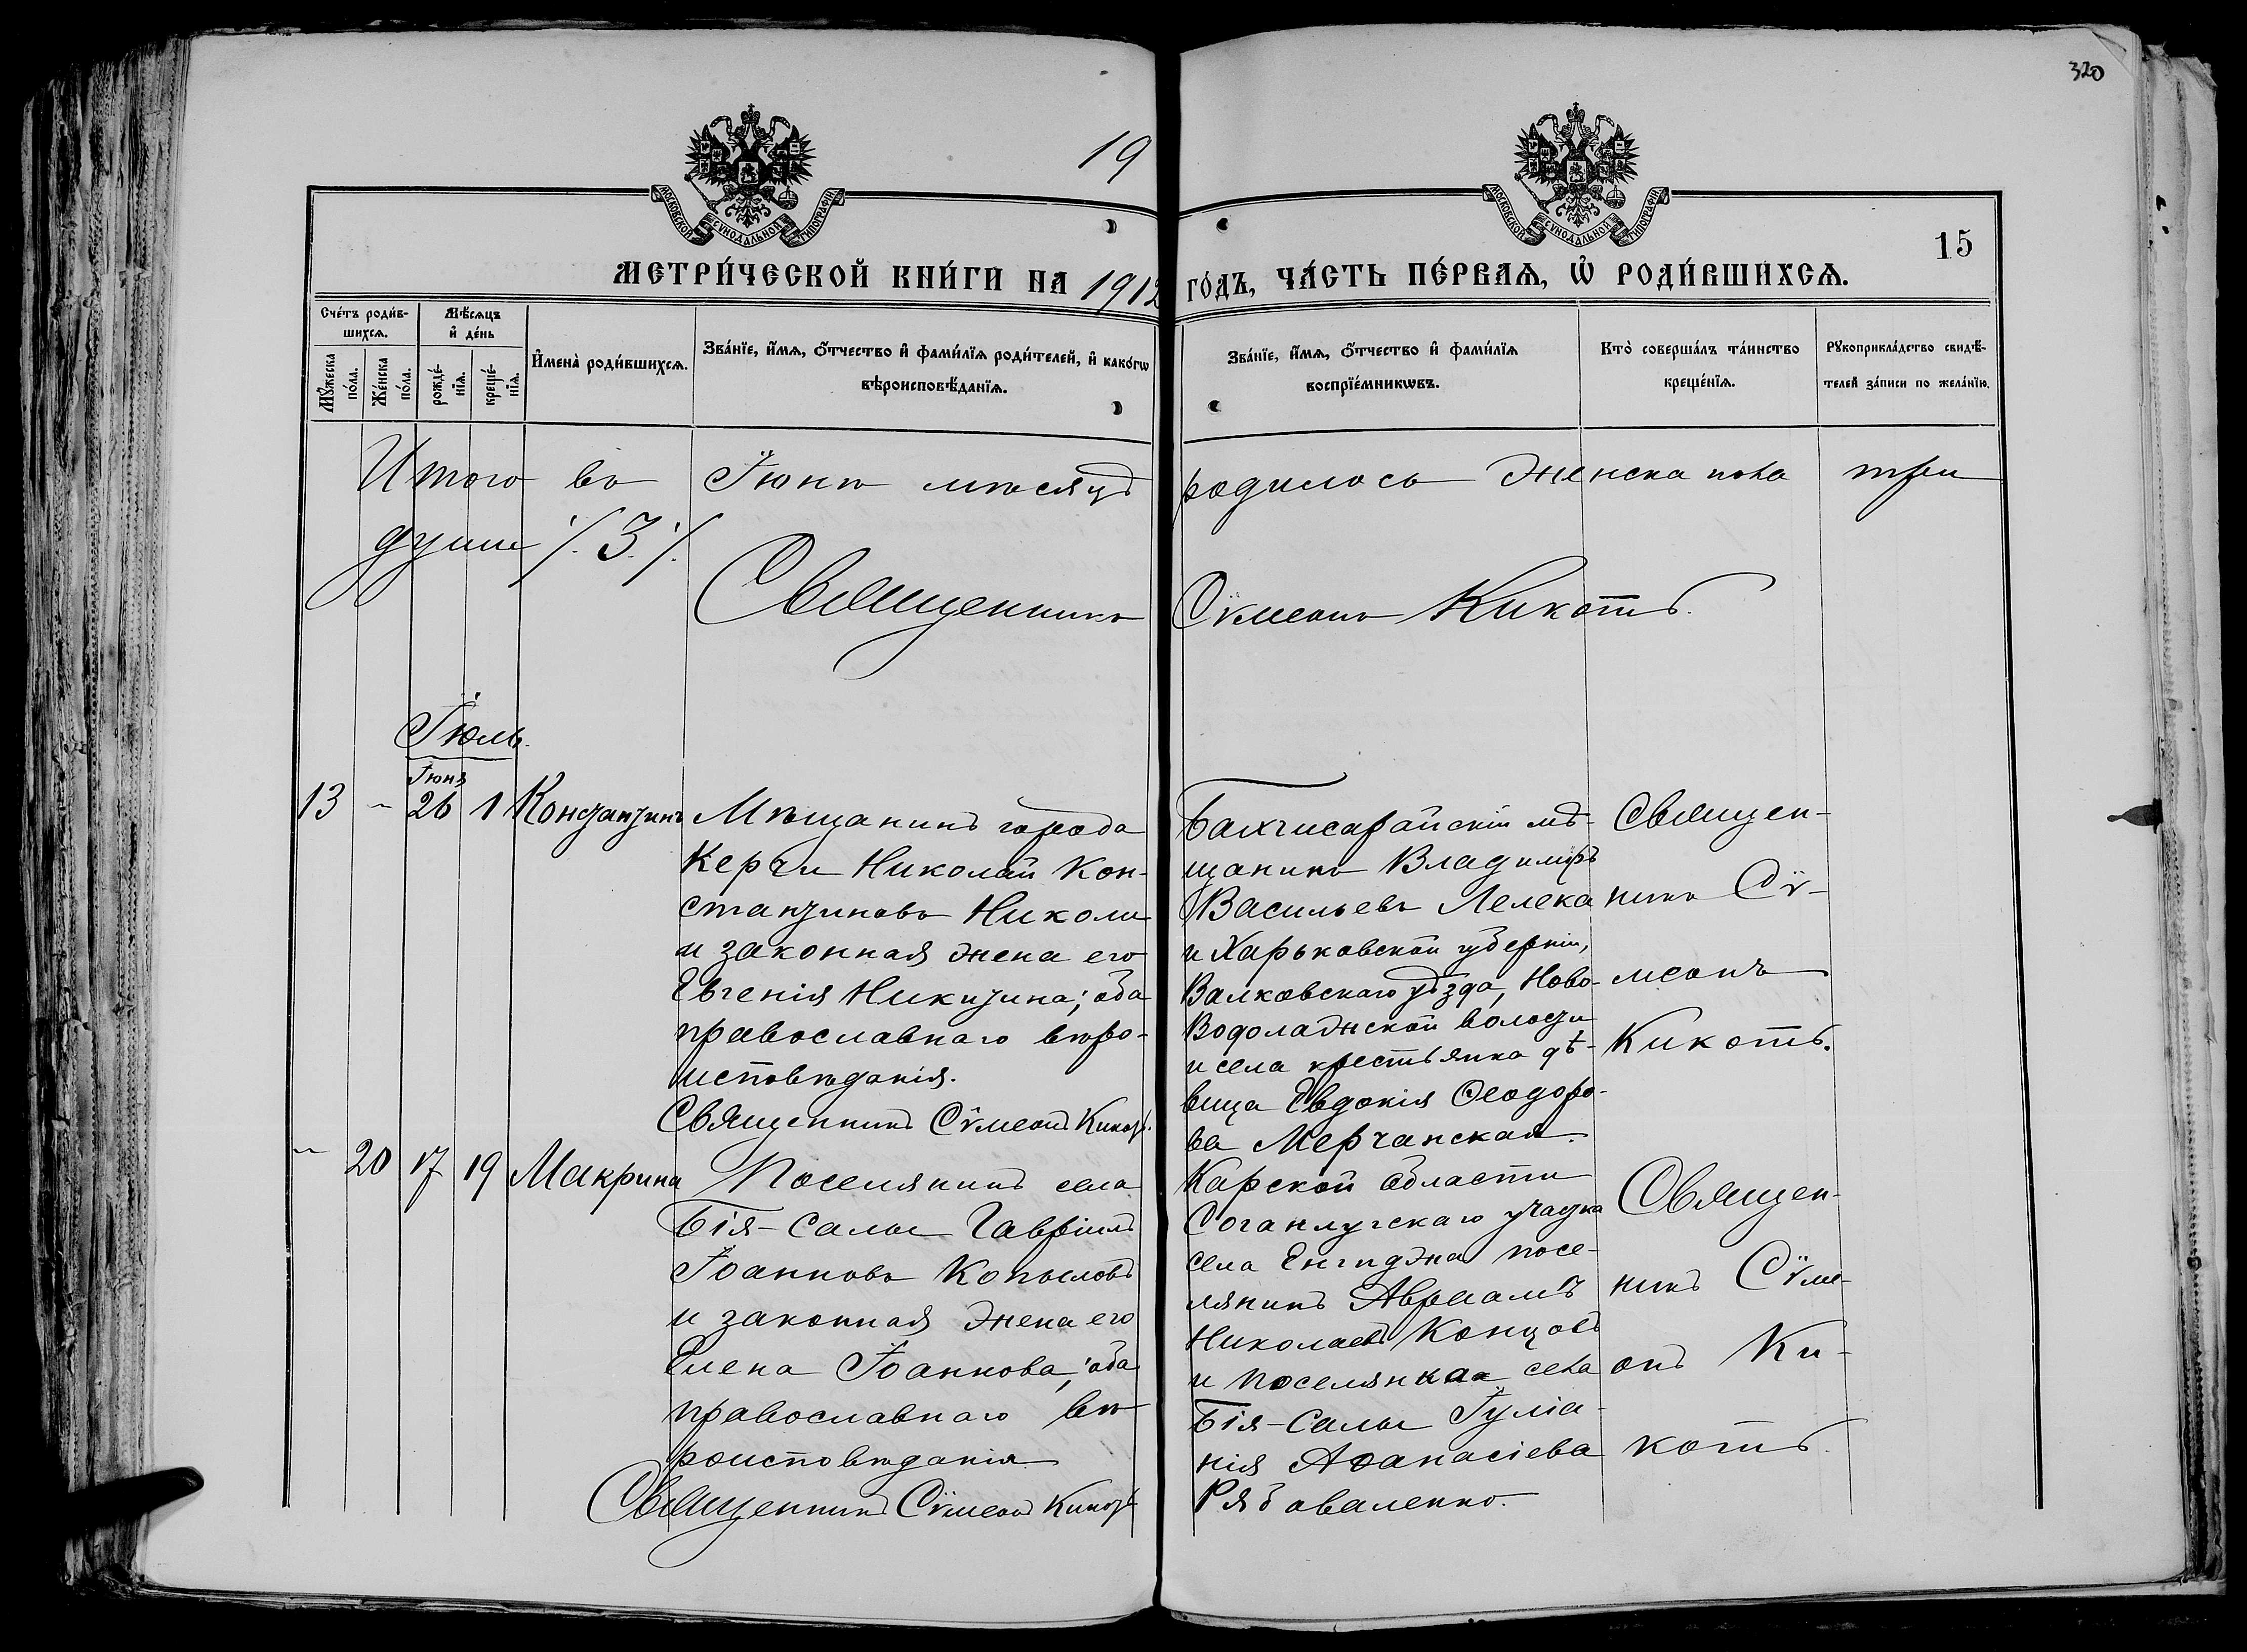 320
19
МОСКОВСКОЙ СѴНОДАЛЬНОЙ ТИПОГРАФІИ
МОСКОВСКОЙ СѴНОДАЛЬНОЙ ТИПОГРАФІИ
15
МЕТРИ́ЧЕСКОЙ КНИ́ГИ НА 1912 ГО́ДЪ, ЧА́СТЬ ПЕ́РВАѦ, Ѡ҆ РОДИ́ВШИХСѦ.
Сче́тъ роди́в-
шихсѧ.
Мꙋ́жеска по́ла.
Же́нска по́ла.
Мѣ́сѧцъ
и҆ де́нь
рожде́-
нїѧ.
креще́-
нїѧ.
И҆мена̀ роди́вшихсѧ.
Зва́нїе, и҆́мѧ, ѻ҆́тчество и҆ фами́лїѧ роди́телей, и҆ како́гѡ
вѣроисповѣ́данїѧ.
Зва́нїе, и҆́мѧ, ѻ҆́тчество и҆ фами́лїѧ
воспрїе́мникѡвъ.
Кто̀ соверша́лъ та́инство
креще́нїѧ.
Рꙋкоприкла́дство свидѣ́-
телей за́писи по жела́нїю.
Итого въ Іюнѣ мѣсяцѣ родилось женска пола три
души /.3./.
Священникъ Сѵмеонъ Кикоть.
Іюль.
Іюня
13 – 26 1 Константинъ
Мѣщанинъ города
Керчи Николай Кон-
стантиновъ Николи
и законная жена его
Евгенія Никитина; оба
православнаго вѣро-
исповѣданія.
Священникъ Сѵмеонъ Кикоть.
Бахчисарайскій мѣ-
щанинъ Владиміръ
Васильевъ Лелека
и Харьковской губерніи,
Валковскаго уѣзда, Ново-
Водолажской волости
и села крестьянка дѣ-
вица Евдокія Ѳеодоро-
ва Мерчанская.
Священ-
никъ Сѵ-
меонъ
Кикоть.
– 20 17 19 Макрина
Поселянинъ села
Бія-Салы Гавріилъ
Іоанновъ Копыловъ
и законная жена его
Елена Іоаннова; оба
православнаго вѣ-
роисповѣданія
Священникъ Сѵмеонъ Кикоть
Карской области
Соганлугскаго участка
села Енгиджа посе-
лянинъ Авраамъ
Николаевъ Концовъ
и поселянка села
Бія-Салы Іуліа-
нія Аѳанасіева
Рябоваленко.
Священ-
никъ Сѵме-
онъ Ки-
коть.